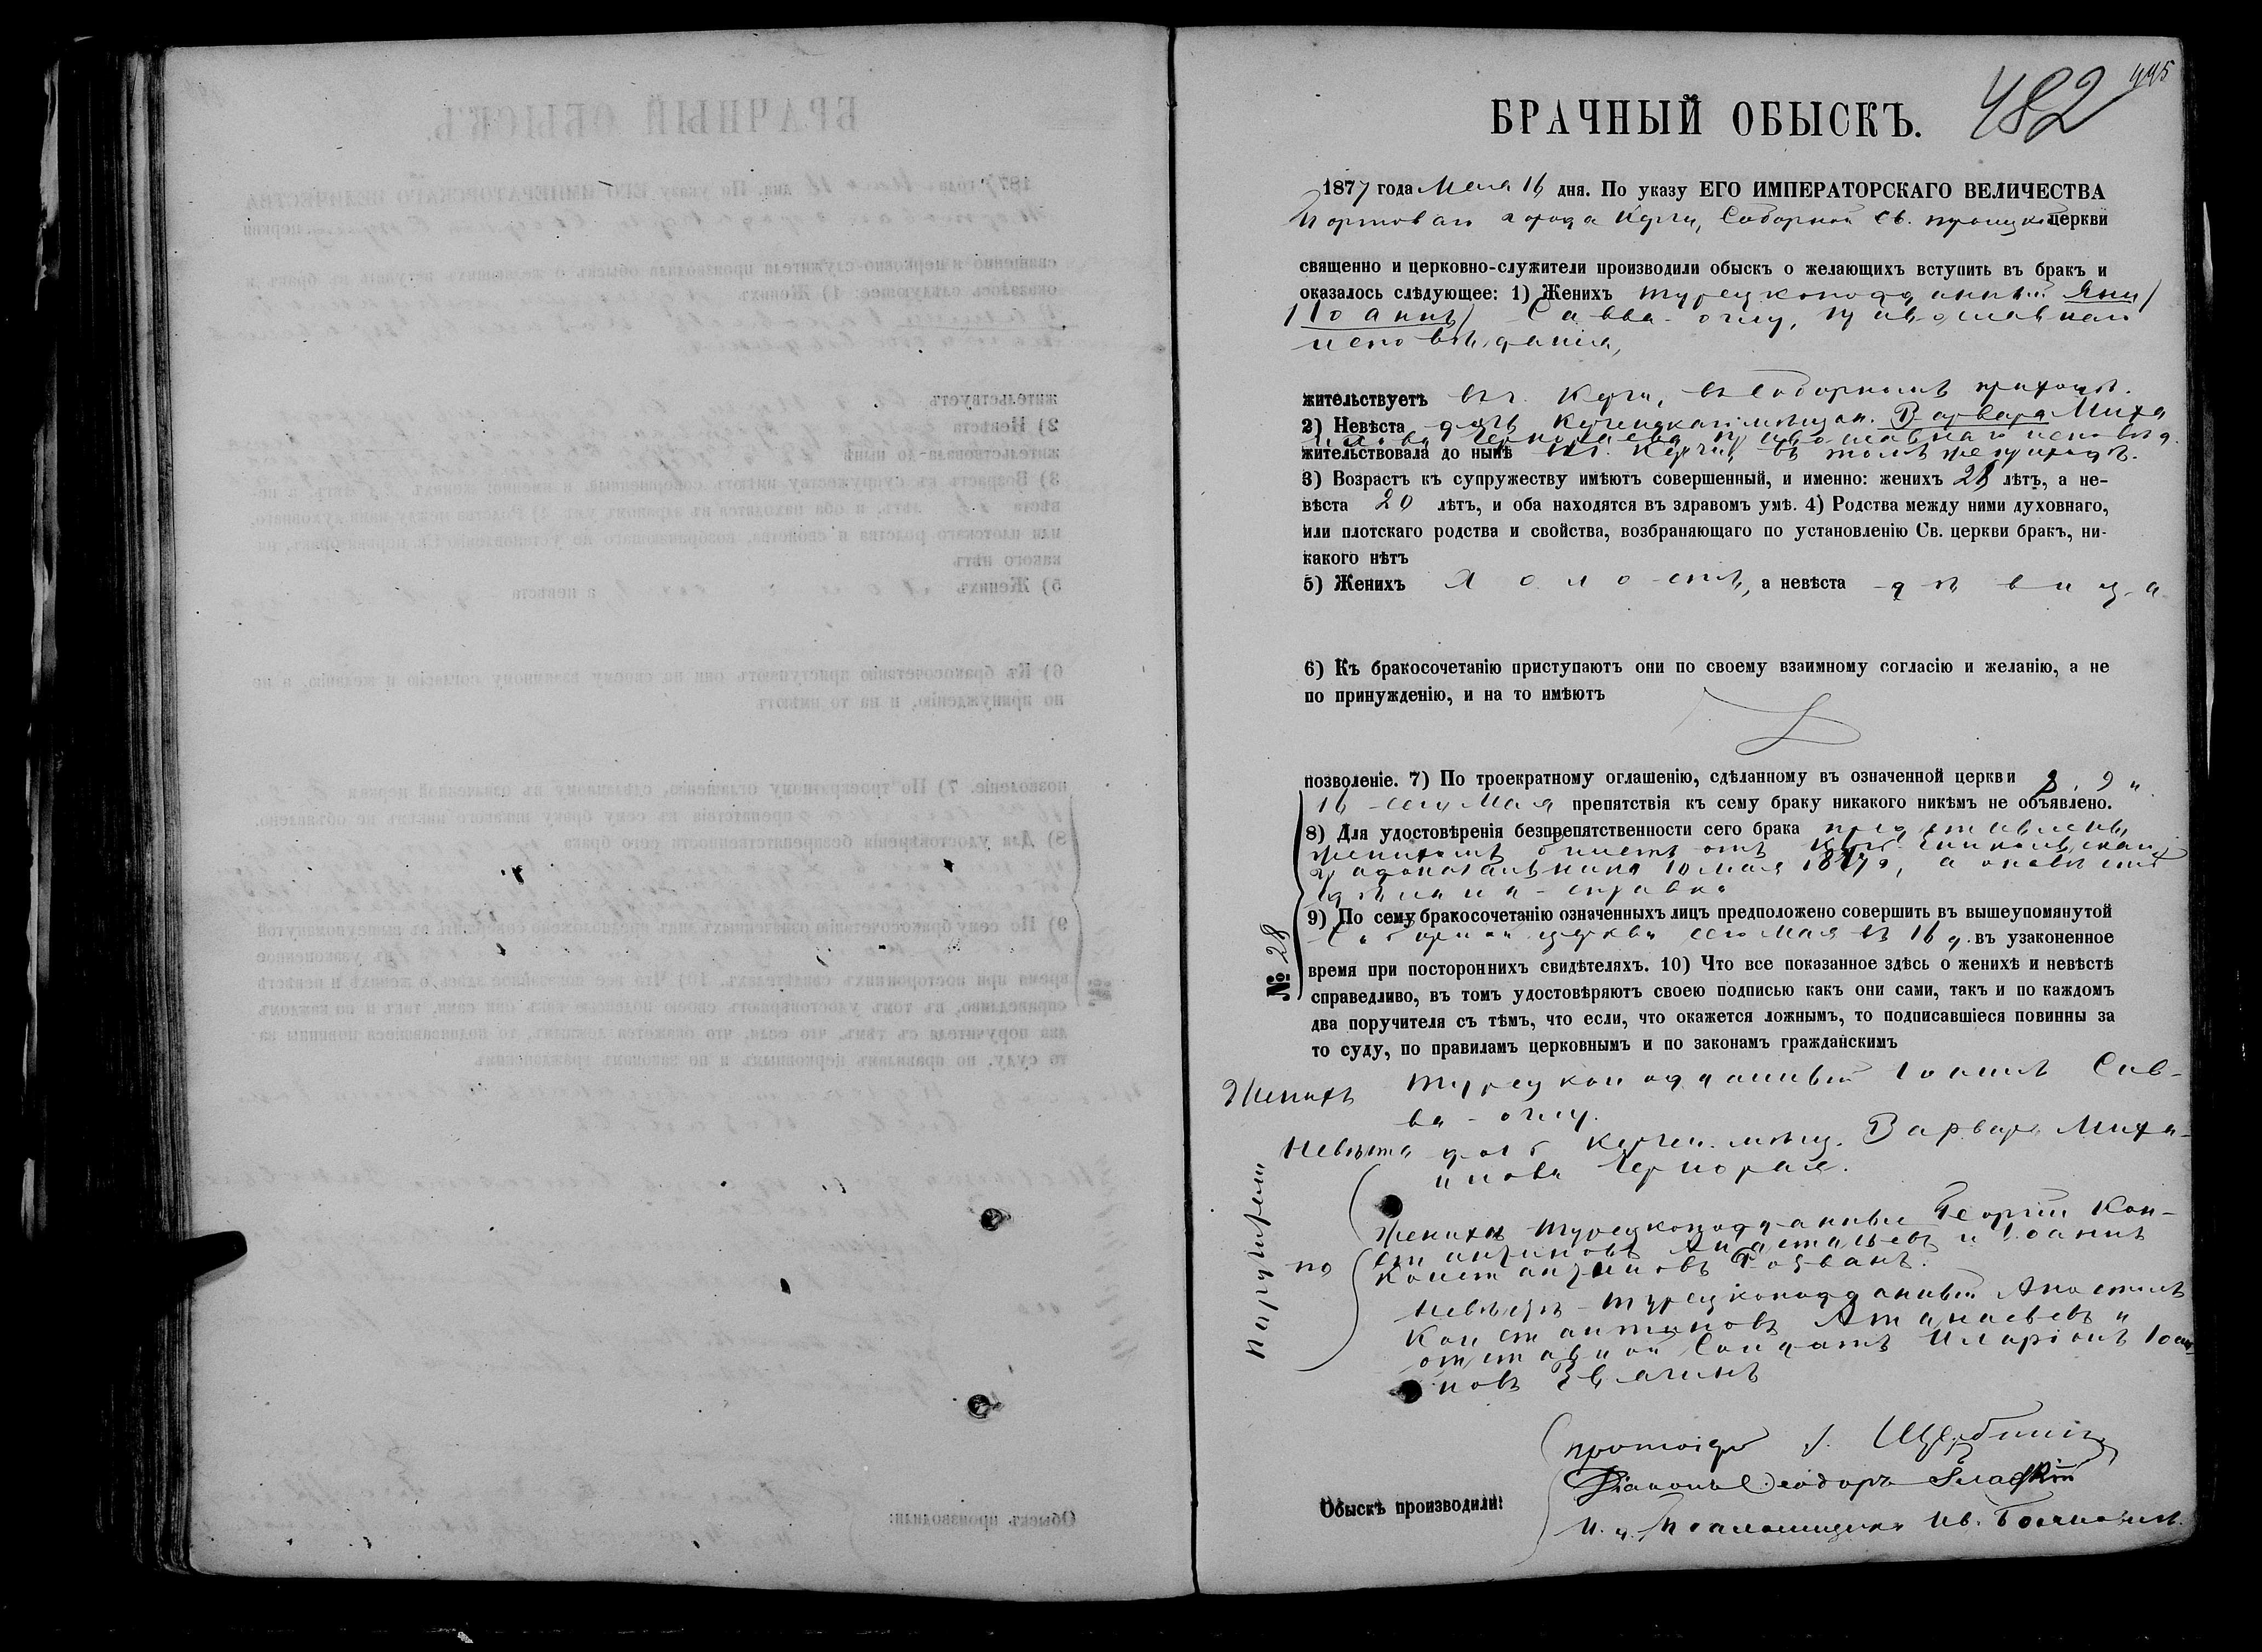 445
482
БРАЧНЫЙ ОБЫСКЪ.
1877 года Мая 16 дня. По указу ЕГО ИМПЕРАТОРСКАГО ВЕЛИЧЕСТВА
Портоваго города Керчи, Соборной Св. Троицкой церкви
священно и церковно-служители производили обыскъ о желающихъ вступить въ бракъ и
оказалось слѣдующее: 1) Женихъ турецкоподданный Яни
(Іоаннъ) Савва-оглу, православнаго
исповѣданія,
жительствуетъ въ г. Керчи, въ Соборномъ приходѣ.
2) Невѣста дочь Керченскаго мѣщан. Варвара Миха
илова Черно православнаго исповѣд.
жительствовала до нынѣ въ г. Керчи, въ томъ же приходѣ.
3) Возрастъ къ супружеству имѣютъ совершенный, и именно: женихъ лѣтъ, а не-
вѣста 20 лѣтъ, и оба находятся въ здравомъ умѣ. 4) Родства между ними духовнаго,
или плотскаго родства и свойства, возбраняющаго по установленію Св. церкви бракъ, ни-
какого нѣтъ
5) Женихъ холостъ, а невѣста дѣвица
6) Къ бракосочетанію приступаютъ они по своему взаимному согласію и желанію, а не
по принужденію, и на то имѣютъ
позволеніе. 7) По троекратному оглашенію, сдѣланному въ означенной церкви 8, 9 и
16 сего Мая препятствія къ сему браку никакого никѣмъ не объявлено.
8) Для удостовѣренія безпрепятственности сего брака представленъ
женихомъ билетъ отъ Керч. Еникольскаго
Градоначальника 10 мая 1877 г., а о невѣстѣ
сдѣлана справка
9) По сему бракосочетанію означенныхъ лицъ предположено совершить въ вышеупомянутой
Соборной церкви сего Мая въ 16 д. въ узаконенное
№ 28
время при постороннихъ свидѣтеляхъ. 10) Что все показанное здѣсь о женихѣ и невѣстѣ
справедливо, въ томъ удостовѣряютъ своею подписью какъ они сами, такъ и по каждомъ
два поручителя съ тѣмъ, что если, что окажется ложнымъ, то подписавшіеся повинны за
то суду, по правиламъ церковнымъ и по законамъ гражданскимъ
Женихъ турецкоподданный Іоаннъ Сав-
ва-оглу.
Невѣста дочь Керчен. мѣщ. Варвара Миха-
илова
Поручители
по
женихѣ турецкоподданные Георгій Кон-
стантиновъ Анастасьевъ и Іоаннъ
Константиновъ
невѣстѣ турецкоподданный Апостолъ
Константиновъ Атанасьевъ и
отставной Солдатъ Иларіонъ Іоан-
новъ
Обыскъ производили:
протоіерей І. Щербининъ
Діаконъ Ѳеодоръ Гладкій
И. д. Псаломщика Ив.